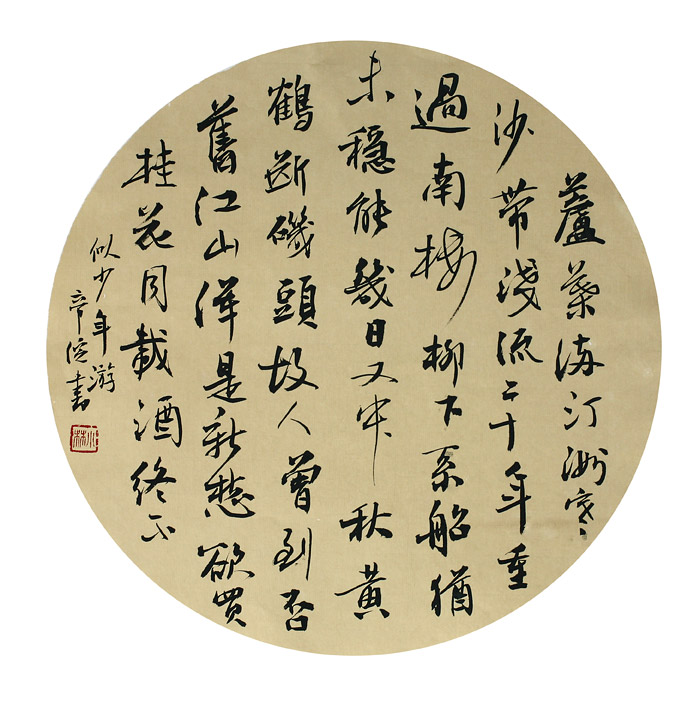 蘆葉滿汀洲寒
沙帶淺流二十年重
過南樓柳下系船猶
未穩能幾日又中秋黃
鶴斷磯頭故人曾到否
舊江山渾是新愁欲買
桂花同載酒終不
似少年游
書